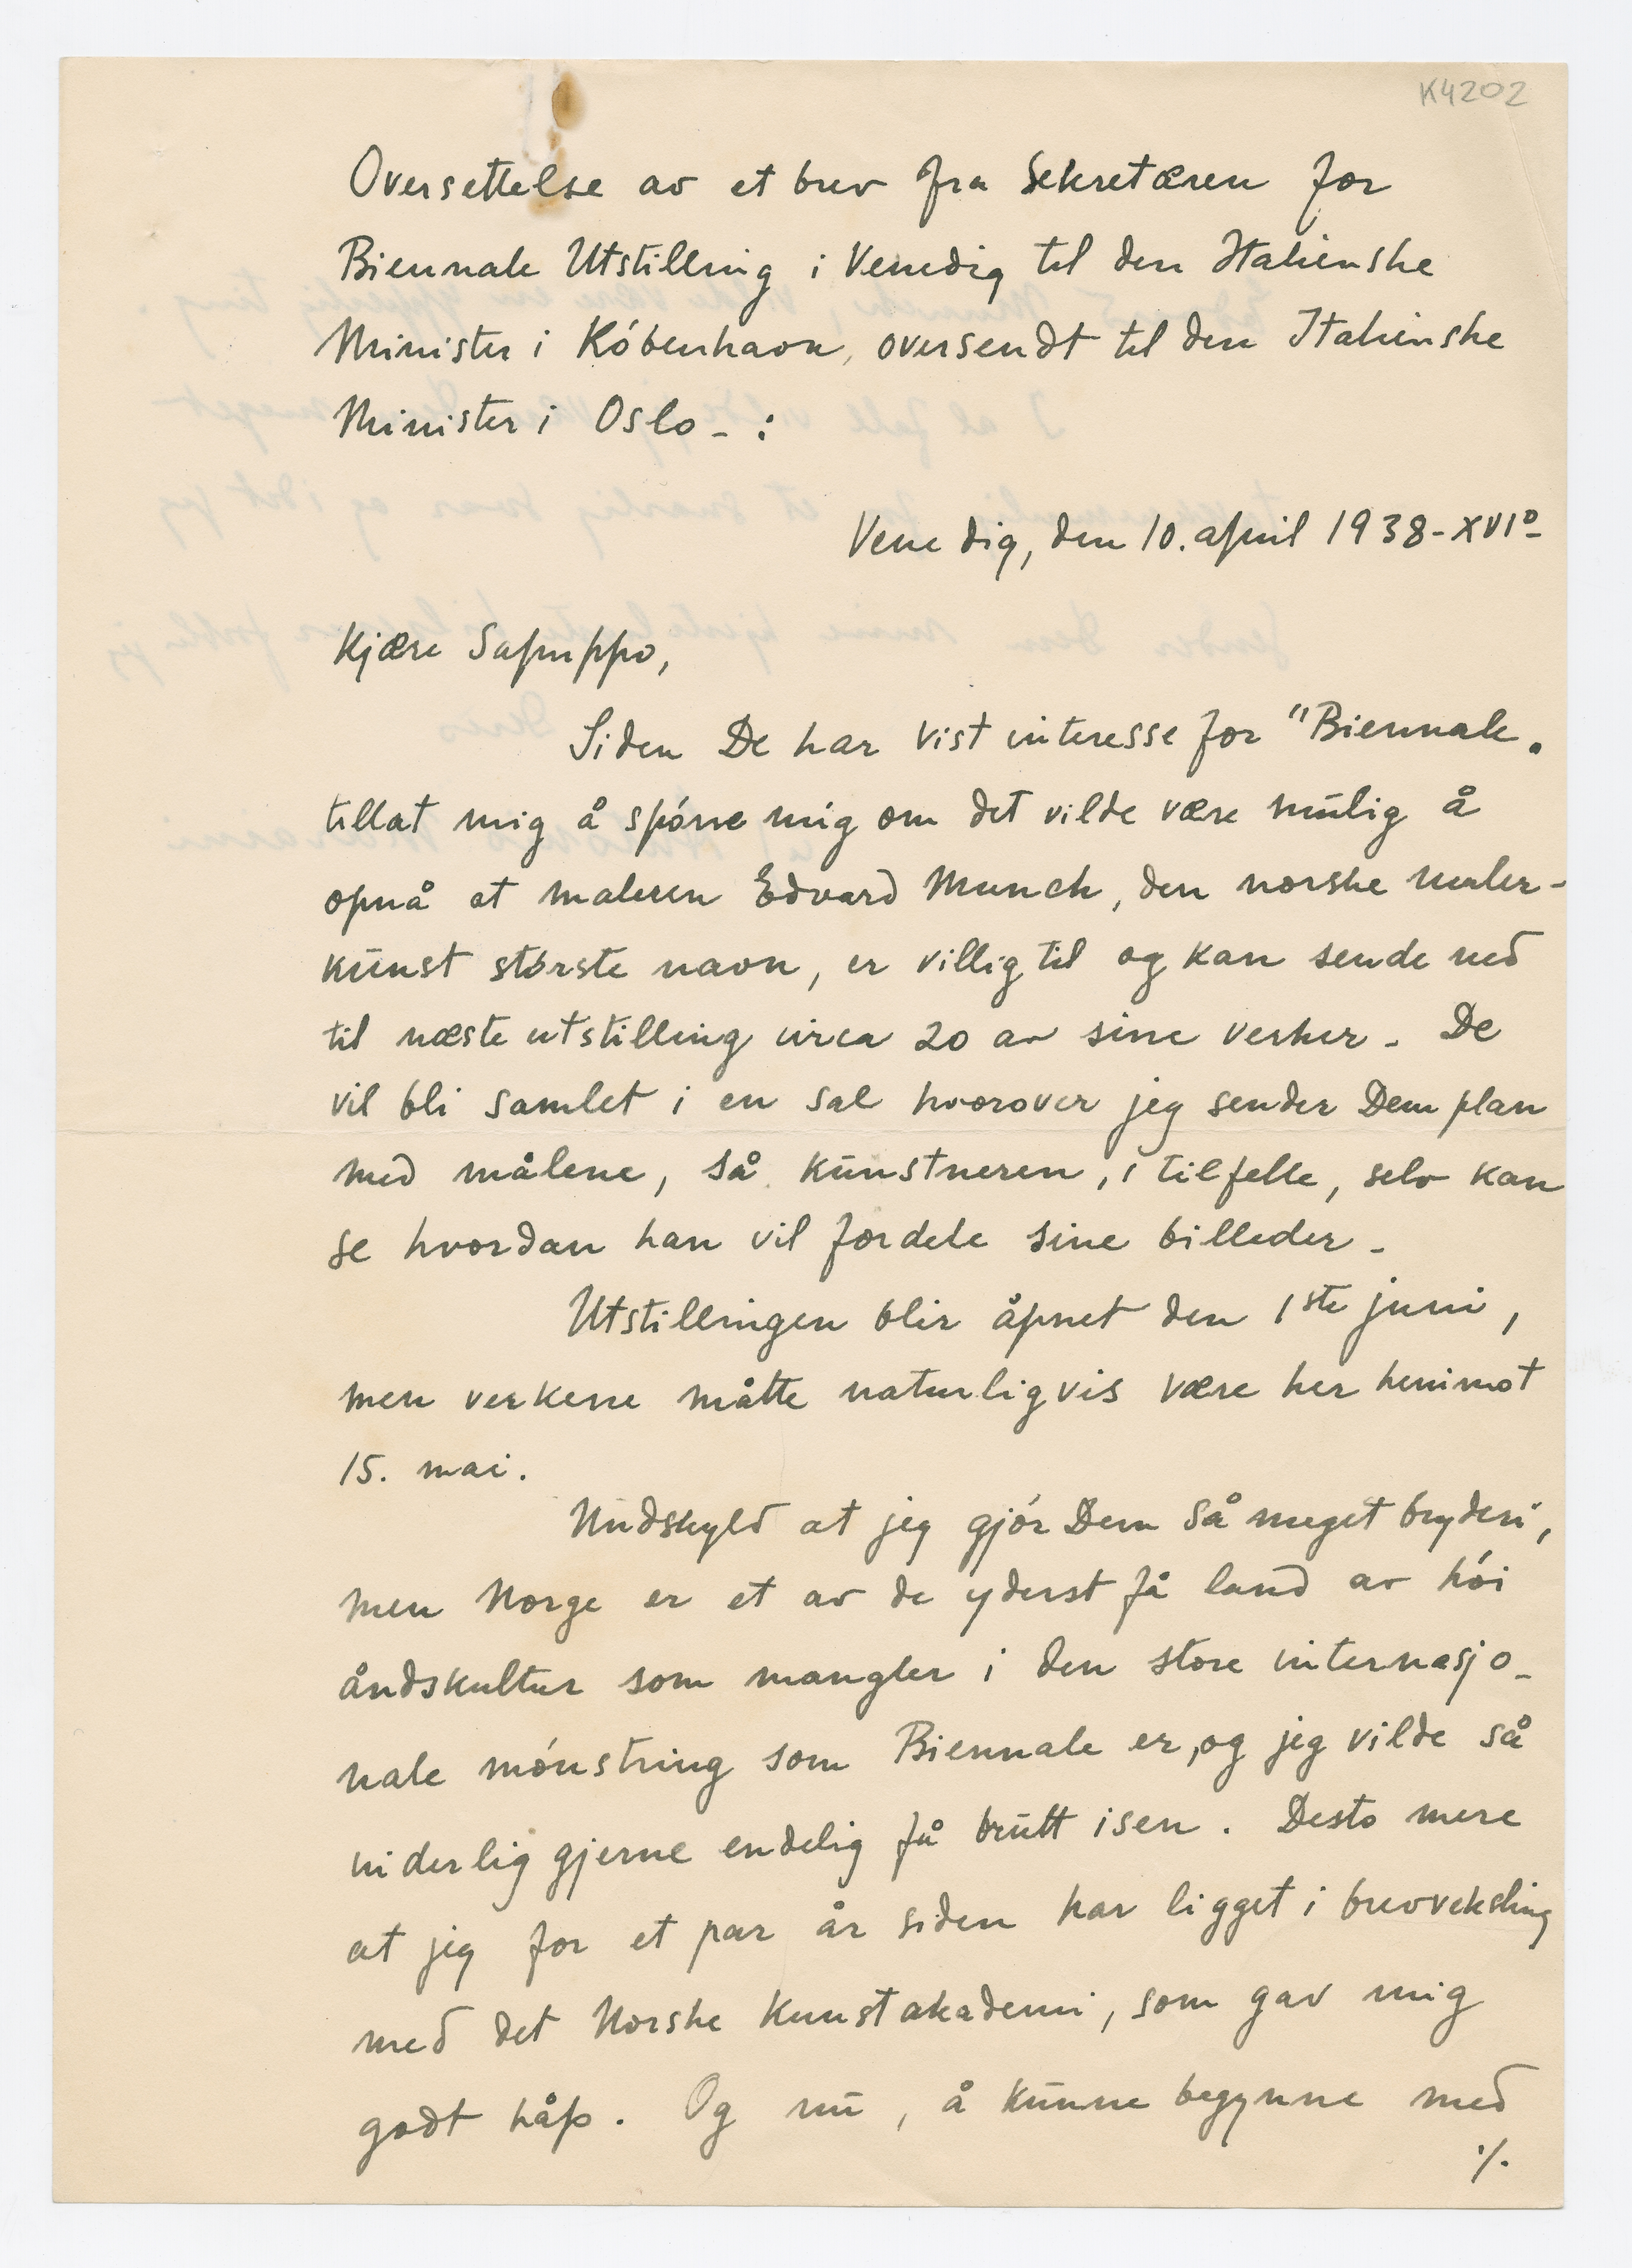 K4202
Oversettelse av et brev fra Sekretæren for
Biennale Utstilling i Venedig til den Italienske
Minister i Köbenhavn, oversendt til den Italienske
Minister i Oslo - :
Venedig, den 10. april 1938 - XVIº -
Kjære Sapuppo,
Siden De har vist interesse for "Biennale.
tillat mig å spórre mig om det vilde være mūlig å
opnå at maleren Edvard Munch, den norske maler-
kūnst störste navn, er villig til og kan sende ned
til næste utstilling circa 20 av sine verker. De
vil bli samlet i en sal hvorover jeg sender Dem plan
med målene, så kūnstneren, i tilfelle, selv kan
se hvordan han vil fordele sine billeder.
Utstillingen blir åpnet den 1ste juni,
men verkene måtte naturligvis være her henimot
15. mai.
Undskyld at jeg gjór Dem så meget bryderi,
men Norge er et av de yderst få land av hói
åndskultur som mangler i den store internasjo-
nale mónstring som Biennale er, og jeg vilde så
inderlig gjerne endelig få brūtt isen. Desto mere
at jeg for et par år siden har ligget i brevveksling
med det Norske Kunstakademi, som gav mig
godt håp. Og nū, å kūnne begynne med
./.